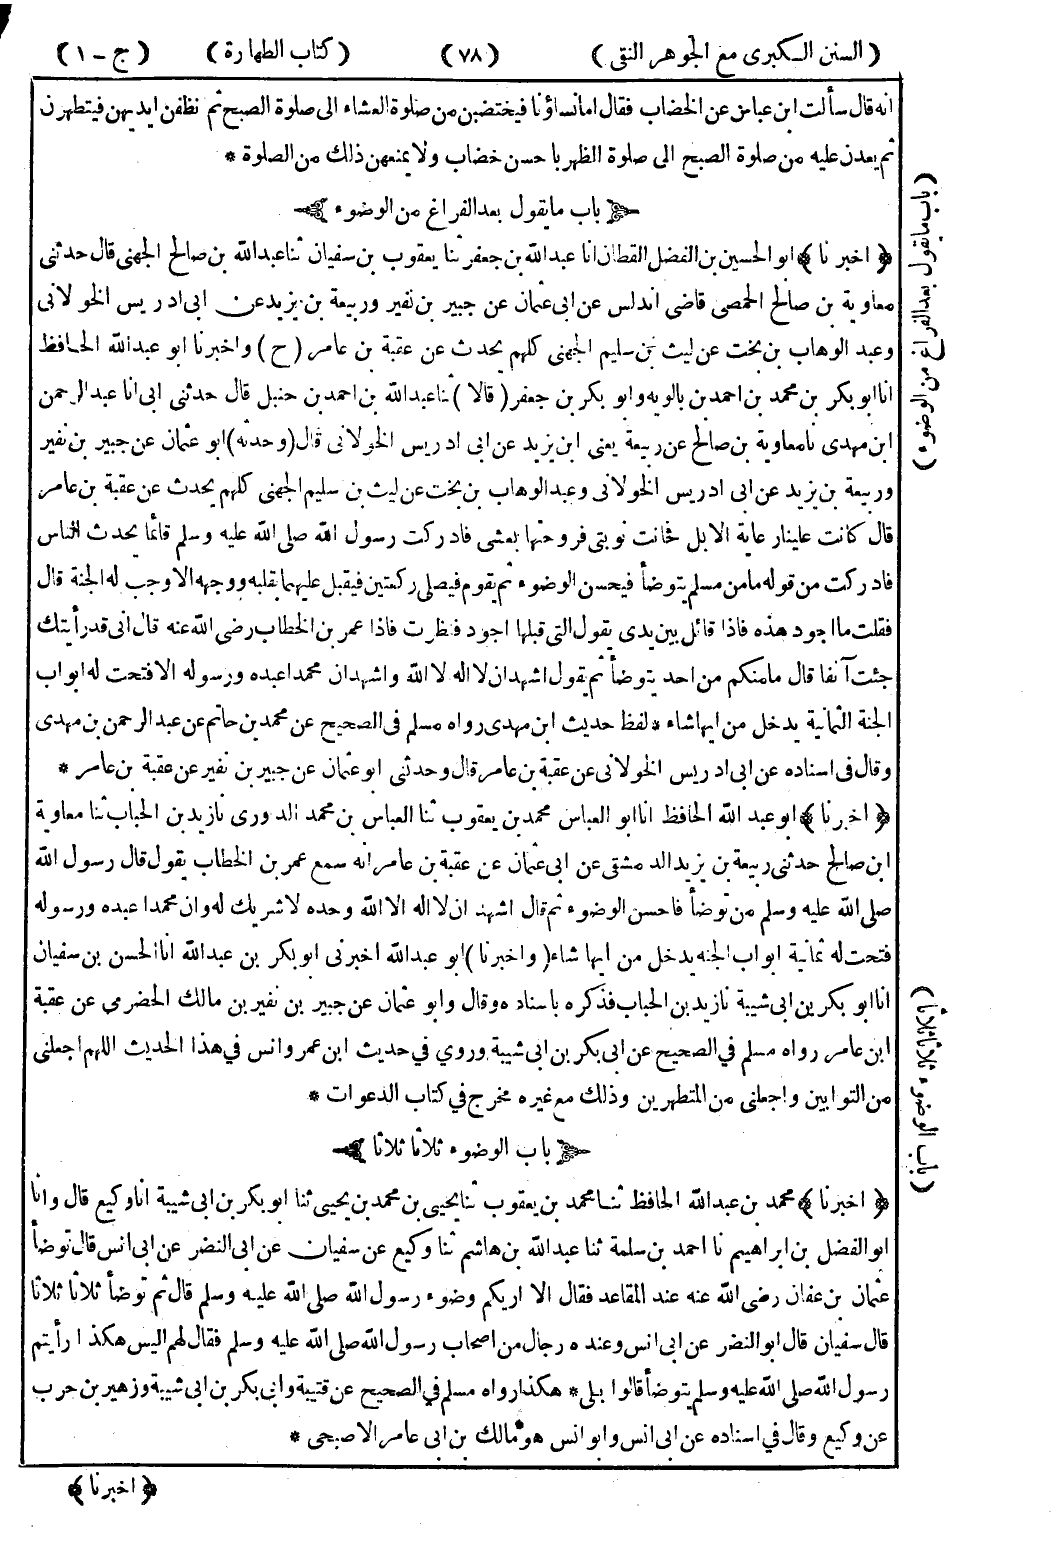 ( السنن الكبرى مع الجوهر النقى ) ( ٧٨ ) ( كتاب الطهارة ) ( ج - ١ )
انه قال سألت ابن عباس عن الخضاب فقال اما نساؤنا فيختضبن من صلوة العشاء الى صلوة الصبح ثم نظفن ايديهن فيتطهرن
ثم يعدن عليه من صلوة الصبح الى صلوة الظهر با حسن خضاب ولا يمنعهن ذلك من الصلوة *
باب ما يقول بعد الفراغ من الوضوء
﴿ اخبرنا ﴾ ابو الحسين بن الفضل القطان انا عبد الله بن جعفر ثنا يعقوب بن سفيان ثنا عبد الله بن صالح الجهنى قال حدثنى
معاوية بن صالح الحمصى قاضى اندلس عن ابى عثمان عن جبير بن نفير وربيعة بن يزيد عن ابى ادريس الخولانى
وعبد الوهاب بن بخت عن ليث بن سليم الجهنى كلهم يحدث عن عقبة بن عامر ( ح ) واخبرنا ابو عبد الله الحافظ
انا ابو بكر بن محمد بن احمد بن بالويه وابو بكر بن جعفر ( قالا ) ثنا عبد الله بن احمد بن حنبل قال حدثنى ابى انا عبد الرحمن
ابن مهدى نا معاوية بن صالح عن ربيعة يعنى ابن يزيد عن ابى ادريس الخولانى قال ( وحدثه ) ابو عثمان عن جبير بن نفير
وربيعة بن يزيد عن ابى ادريس الخولانى وعبد الوهاب بن بخت عن ليث بن سليم الجهنى كلهم يحدث عن عقبة بن عامر
قال كانت علينا رعاية الابل فجانت نوبتى فروحتها بعشى فادركت رسول الله صلى الله عليه وسلم قائما يحدث الناس
فادركت من قوله ما من مسلم يتوضأ فيحسن الوضوء ثم يقوم فيصلى ركعتين فيقبل عليهما بقلبه ووجهه الا وجب له الجنة قال
فقلت ما اجود هذه فاذا قائل بين يدى يقول التى قبلها اجود فنظرت فاذا عمر بن الخطاب رضى الله عنه قال انى قد رأيتك
جئت آنفا قال ما منكم من احد يتوضأ ثم يقول اشهد ان لا اله الا الله واشهد ان محمدا عبده ورسوله الا فتحت له ابواب
الجنة الثمانية يدخل من ايها شاء * لفظ حديث ابن مهدى رواه مسلم فى الصحيح عن محمد بن حاتم عن عبد الرحمن بن مهدى
وقال فى اسناده عن ابى ادريس الخولانى عن عقبة بن عامر قال وحدثنى ابو عثمان عن جبير بن نفير عن عقبة بن عامر *
﴿ اخبرنا ﴾ ابو عبد الله الحافظ انا ابو العباس محمد بن يعقوب ثنا العباس بن محمد الدورى نا زيد بن الحباب ثنا معاوية
ابن صالح حدثنى ربيعة بن يزيد الدمشقى عن ابى عثمان عن عقبة بن عامر انه سمع عمر بن الخطاب يقول قال رسول الله
صلى الله عليه وسلم من توضأ فاحسن الوضوء ثم قال اشهد ان لا اله الا الله وحده لا شريك له وان محمدا عبده ورسوله
فتحت له ثمانية ابواب الجنه يدخل من ايها شاء ( واخبرنا ) ابو عبد الله اخبرنى ابو بكر بن عبد الله انا الحسن بن سفيان
انا ابو بكر بن ابى شيبة نا زيد بن الحباب فذكره باسناده وقال وابو عثمان عن جبير بن نفير بن مالك الحضرمى عن عقبة
ابن عامر رواه مسلم في الصحيح عن ابى بكر بن ابى شيبة وروي في حديث ابن عمر وانس في هذا الحديث اللهم اجعلنى
من التوابين واجعلنى من المتطهرين وذلك مع غيره مخرج في كتاب الدعوات *
باب الوضوء ثلاثا ثلاثا
﴿ اخبرنا ﴾ محمد بن عبد الله الحافظ ثنا محمد بن يعقوب ثنا يحيى بن محمد بن يحيى ثنا ابو بكر بن ابى شيبة انا وكيع قال وانا
ابو الفضل بن ابراهيم نا احمد بن سلمة ثنا عبد الله بن هاشم ثنا وكيع عن سفيان عن ابى النضر عن ابى انس قال توضأ
عثمان بن عفان رضى الله عنه عند المقاعد فقال الا اريكم وضوء رسول الله صلى الله عليه وسلم قال ثم توضأ ثلاثا ثلاثا
قال سفيان قال ابو النضر عن ابى انس وعنده رجال من اصحاب رسول الله صلى الله عليه وسلم فقال لهم اليس هكذا رأيتم
رسول الله صلى الله عليه وسلم يتوضأ قالوا بلى * هكذا رواه مسلم في الصحيح عن قتيبة وابى بكر بن ابى شيبة وزهير بن حرب
عن وكيع وقال في اسناده عن ابى انس وابو انس هو مالك بن ابى عامر الاصبحى *
﴿ اخبرنا ﴾
( باب ما يقول بعد الفراغ من الوضوء )
( باب الوضوء ثلاثا ثلاثا )